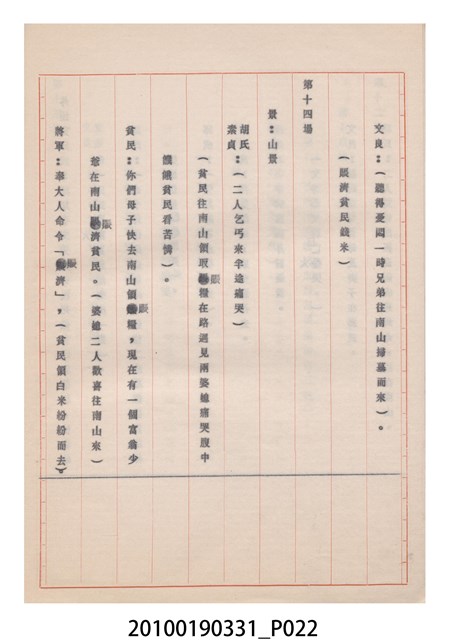 文良：（聽得憂悶一時兄弟往南山掃墓而來）。
（賑濟貧民錢米）
第十四場
景：山景
胡氏
素貞：（二人乞丐來半途痛哭）
（貧民往南山領取賑糧在路遇見兩婆媳痛哭腹中
饑餓貧民看苦情）。
貧民：你們母子快去南山領賑糧，現在有一個富翁少
爺在南山賑濟貧民。（婆媳二人歡喜往南山來）
將軍：奉大人命令「賑濟」，（貧民領白米紛紛而去）。
20100190331_P022